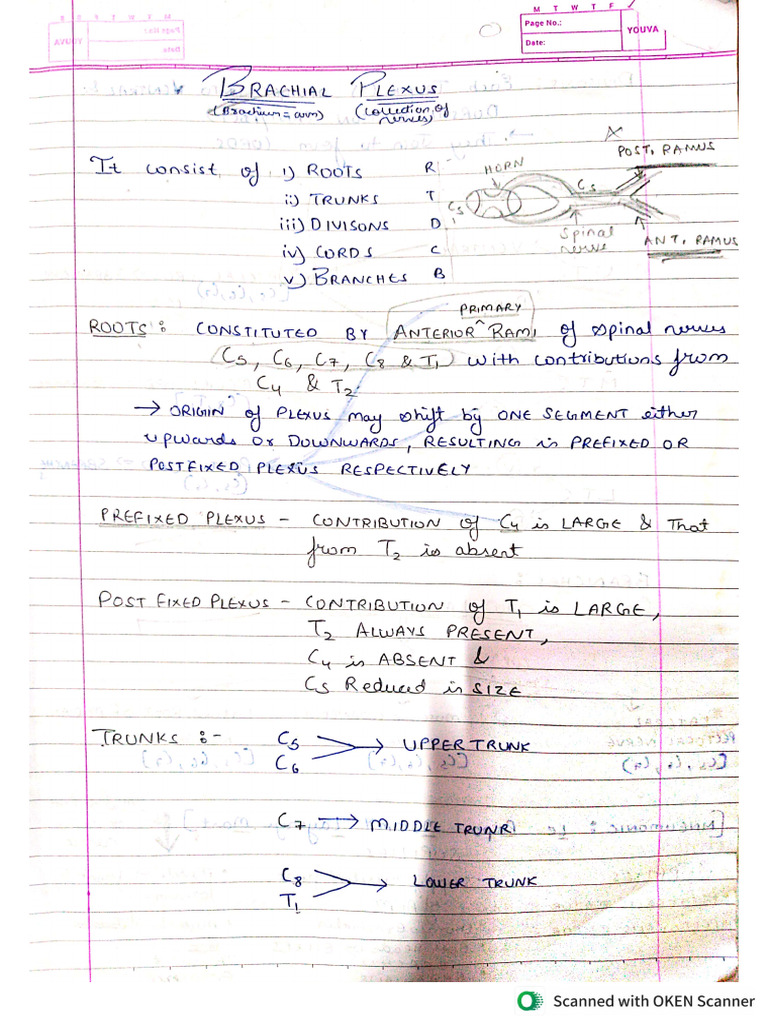 M T W T F
Page No.:
Date:
YOUVA
BRACHIAL PLEXUS
(Brachium = arm) (Collection of nerves)
It consist of i) ROOTS R
ii) TRUNKS T
iii) DIVISONS D
iv) CORDS C
v) BRANCHES B
HORN
C5
C5
Spinal nerve
POST. RAMUS
ANT. RAMUS
PRIMARY
ROOTS : CONSTITUTED BY ANTERIOR ^ RAMI of spinal nerves
(C5, C6, C7, C8 & T1) with contributions from
C4 & T2
→ ORIGIN of PLEXUS may shift by ONE SEGMENT either
upwards or DOWNWARDS, RESULTING is PREFIXED OR
POSTFIXED PLEXUS RESPECTIVELY
PREFIXED PLEXUS - CONTRIBUTION of C4 is LARGE & That
from T2 is absent
POST FIXED PLEXUS - CONTRIBUTION of T1 is LARGE,
T2 ALWAYS PRESENT,
C4 is ABSENT &
C5 Reduced is SIZE
TRUNKS :- C5
C6 → UPPER TRUNK
C7 → MIDDLE TRUNK
C8
T1 → LOWER TRUNK
Scanned with OKEN Scanner